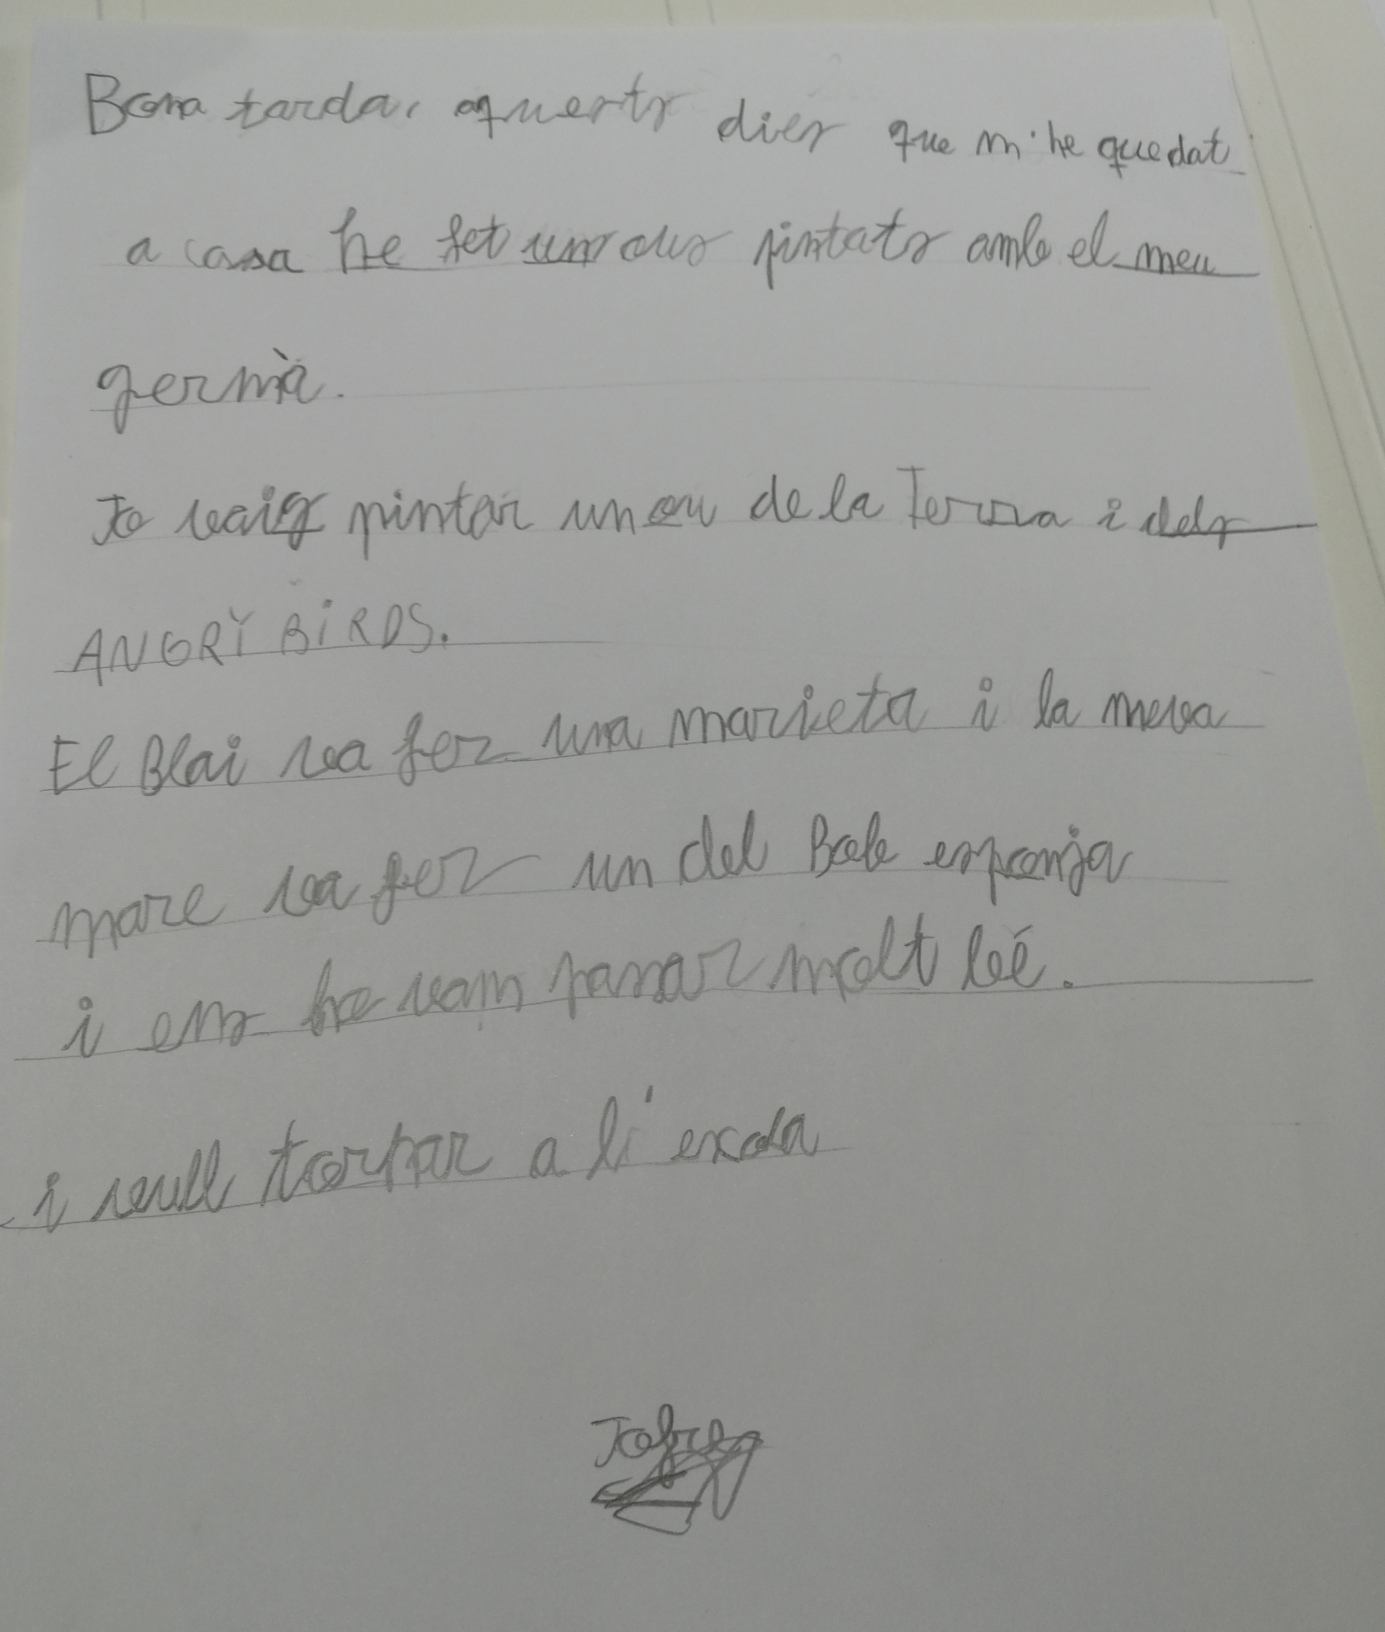 Bona tarda, aquests dies que m'he quedat
a casa he fet uns ous pintats amb el meu
germà.
Jo vaig pintar un ou de la Terra i dels
ANGRY BIRDS.
El Blai va fer una marieta i la meva
mare va fer un del Bob esponja
i ens ho vam passar molt bé.
i vull tornar a l'escola
Jofre